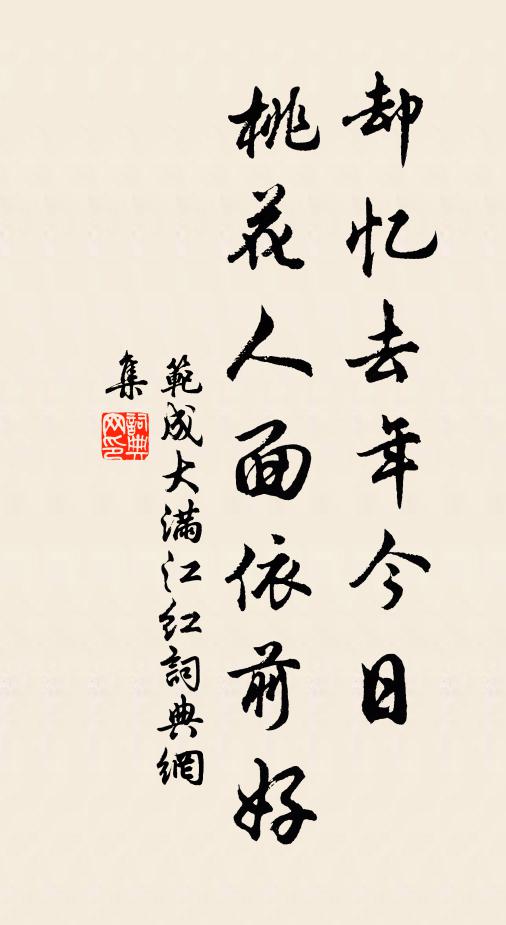 却忆去年今日
桃花人面依前好
範成大满江红詞典網
集
詞典
网印